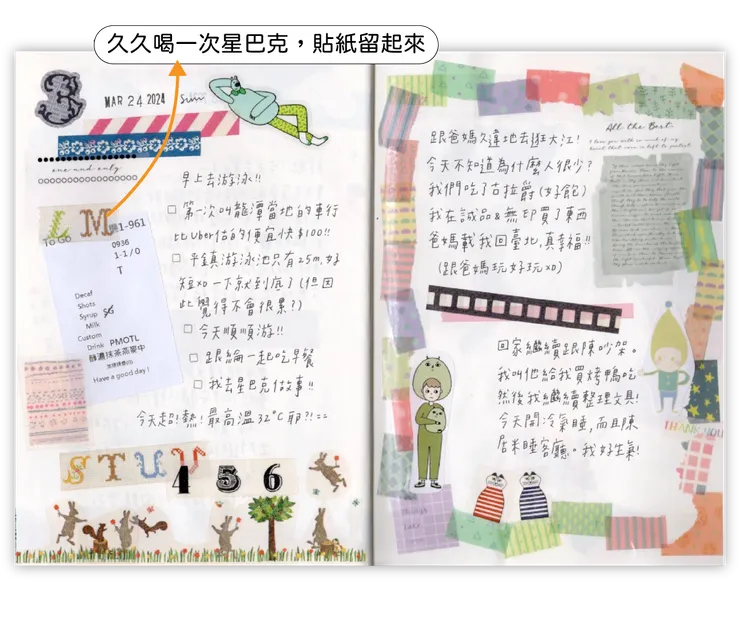 久久喝一次星巴克，貼紙留起來
MAR 24 2024 Sun.
one and only
早上去游泳!!
□ 第一次叫龍潭當地的車行
比Uber估的便宜快$100!!
□ 平鎮游泳池只有25m,好
短xD 一下就到底了(但因
此覺得不會很累?)
□ 今天順順游!!
□ 跟綸一起吃早餐
□ 我去星巴克做事!!
今天超!熱!最高溫32°C耶?!==
L M
1-961
To Go
0936
1-1 / 0
T
Decaf
Shots
Syrup
Milk
Custom
Drink PMOTL
醇濃抹茶燕中
Have a good day !
STUV
4 5 6
跟爸媽久違地去逛大江!
今天不知道為什麼人很少?
我們吃了古拉爵(好飽)
我在誠品&無印買了東西
爸媽載我回臺北,真幸福!!
(跟爸媽玩好玩xD)
All the Best.
回家繼續跟陳吵架。
我叫他給我買烤鴨吃
然後我繼續整理文具!
今天開冷氣睡,而且陳
居米睡客廳。我好生氣!
THANK YOU